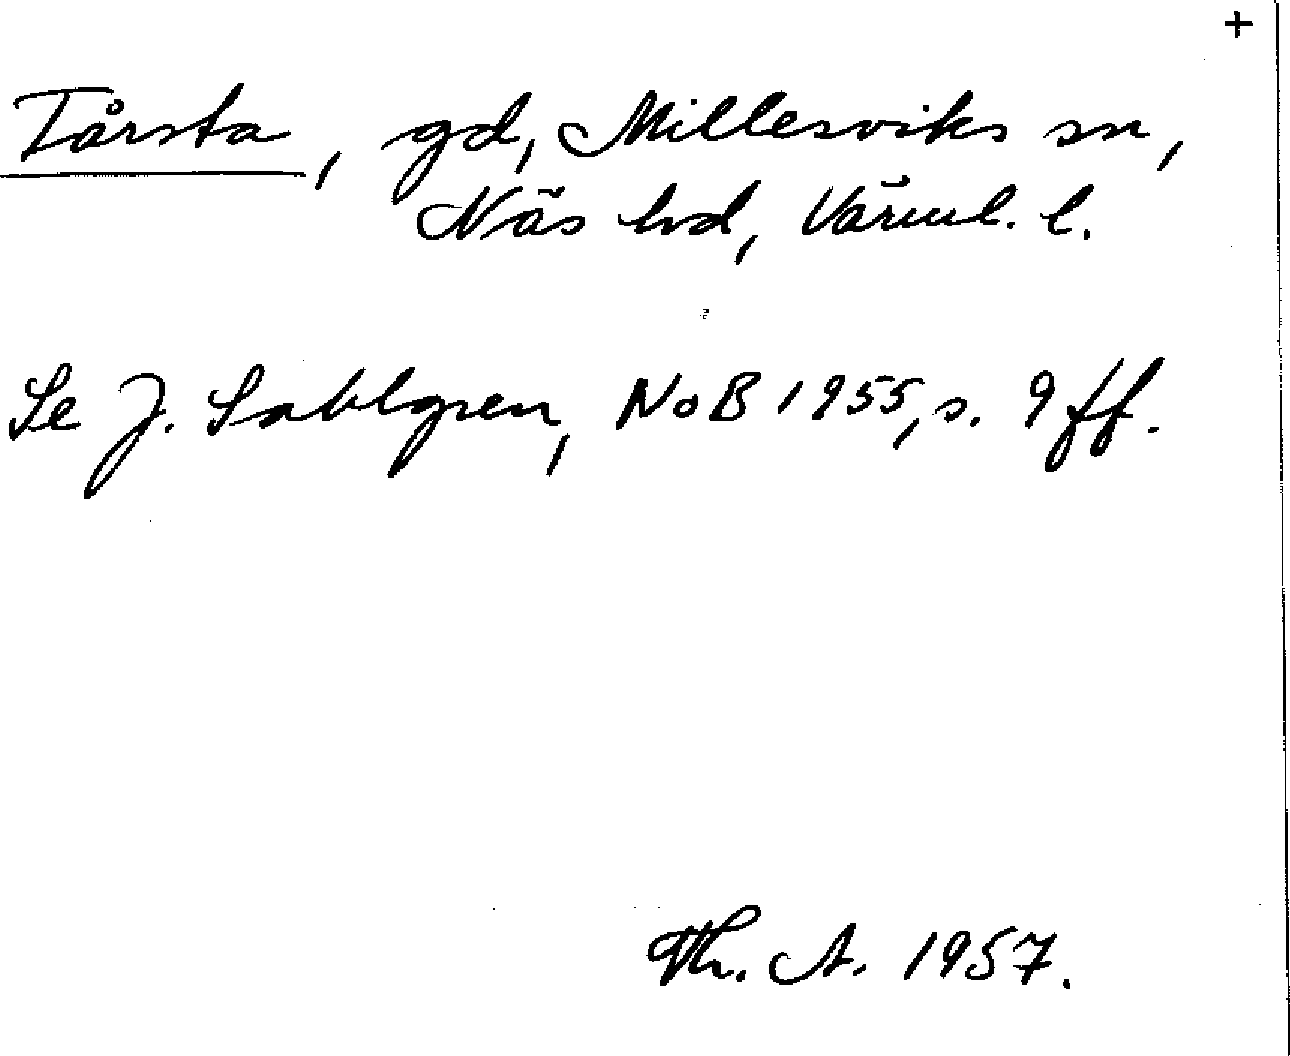 +
Tårsta, gd, Millesviks sn,
Näs hd, Värml. l.
Se J. Sahlgren, NoB 1955, s. 9 ff.
Th. A. 1957.